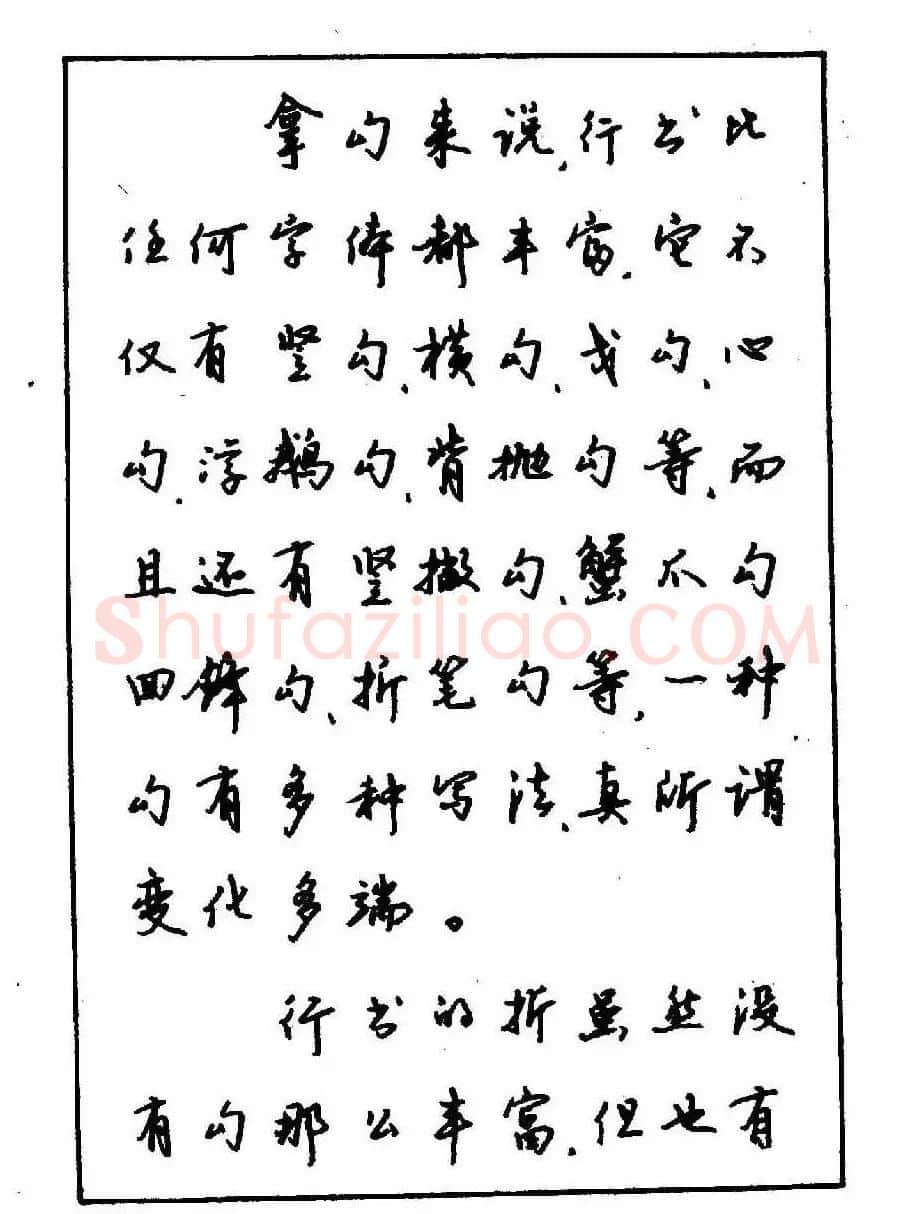 拿勾来说,行书比
任何字体都丰富,它不
仅有竖勾、横勾、戈勾、心
勾、浮鹅勾、背抛勾等,而
且还有竖撇勾、蟹爪勾
Shufaziliao.COM
回锋勾、折笔勾等,一种
勾有多种写法,真所谓
变化多端。
行书的折虽然没
有勾那么丰富,但也有